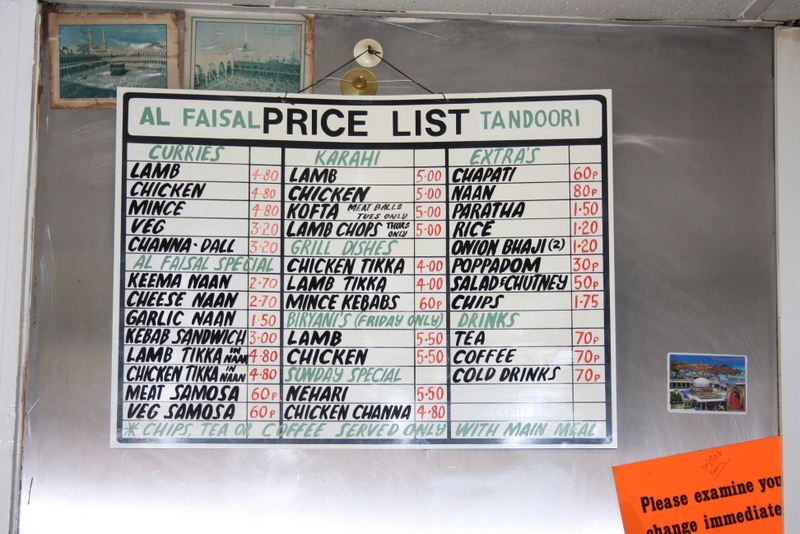 AL FAISAL PRICE LIST TANDOORI
CURRIES
LAMB 4·80
CHICKEN 4·80
MINCE 4·80
VEG 3·20
CHANNA·DALL 3·20
AL FAISAL SPECIAL
KEEMA NAAN 2·70
CHEESE NAAN 2·70
GARLIC NAAN 1·50
KEBAB SANDWICH 3·00
LAMB TIKKA IN NAAN 4·80
CHICKEN TIKKA IN NAAN 4·80
MEAT SAMOSA 60P
VEG SAMOSA 60P
KARAHI
LAMB 5·00
CHICKEN 5·00
KOFTA MEAT BALLS TUES ONLY 5·00
LAMB CHOPS THURS ONLY 5·00
GRILL DISHES
CHICKEN TIKKA 4·00
LAMB TIKKA 4·00
MINCE KEBABS 60P
BIRYANI'S (FRIDAY ONLY)
LAMB 5·50
CHICKEN 5·50
SUNDAY SPECIAL
NEHARI 5·50
CHICKEN CHANNA 4·80
EXTRA'S
CHAPATI 60P
NAAN 80P
PARATHA 1·50
RICE 1·20
ONION BHAJI (2) 1·20
POPPADOM 30P
SALAD & CHUTNEY 50P
CHIPS 1·75
DRINKS
TEA 70P
COFFEE 70P
COLD DRINKS 70P
* CHIPS, TEA OR COFFEE SERVED ONLY WITH MAIN MEAL
Please examine you
change immediate